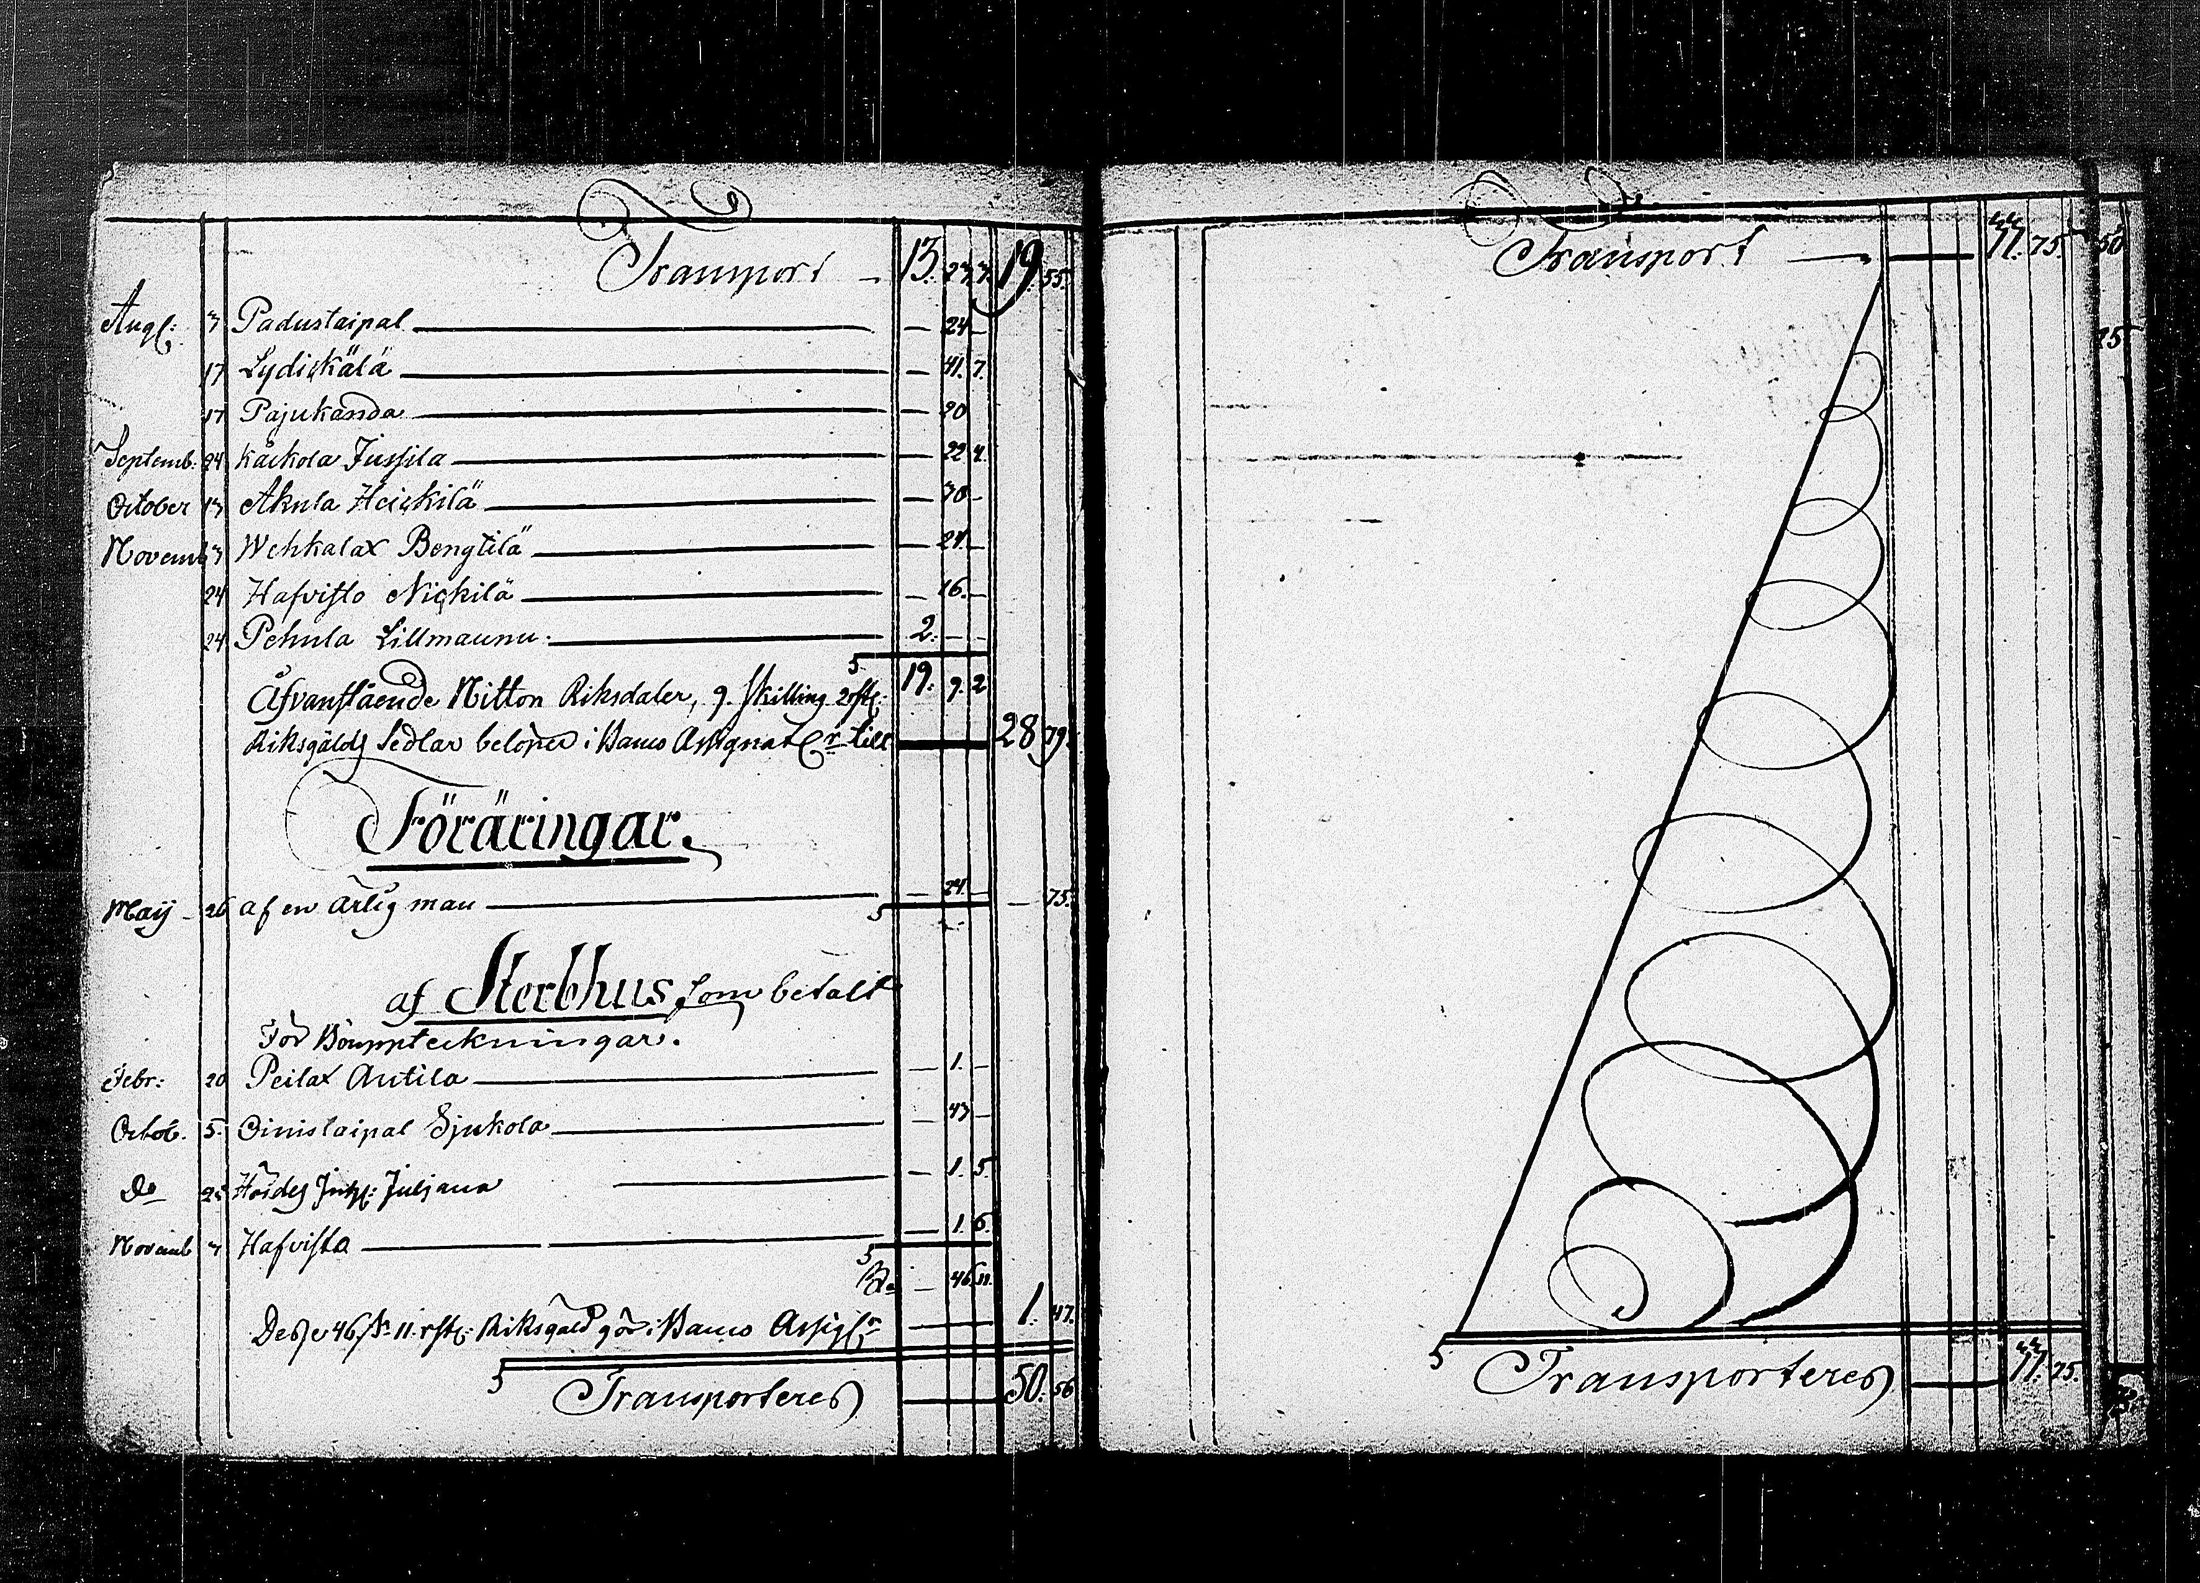 Transport — 13. 27. 7. 19. 55.
Augf: 3 Padustaipal — 24 —
17 Lydickälä — 41. 7.
17 Pajukanda — 20
Septemb. 24 Kackola Jussila — 22 4.
October 13 Akula Heickilä — 30 —
Novemb 3 Wehkalax Bengtilä — 24. —
24 Hafvisto Nickilä — 16. —
24 Pehula Lillmaunu. 2. — —
Åfvanstående Nitton Riksdaler, 9. skilling 2 rst: 19. 9. 2
Riksgälds Sedlar beloper i Banco Assignat Cr till 28. 79.
Föräringar.
Maij 26 af en ärlig man — 24. — — 75.
af Sterbhus som betalt
För Bouppteckningar.
Febr: 20 Peilax Antila — 1. —
Octob. 5. Oinislaipal Sjukola — 43 —
Do 25 Juljana — 1. 5.
Novemb 3 Hafvista — 1. 6.
— 46. 11.
Desse 46 sk 11. rst: Riksgäld gör i Banco 1. 47.
Transporteres 50. 56
Transport 77. 75. 50
25
Transporteres 77. 75.